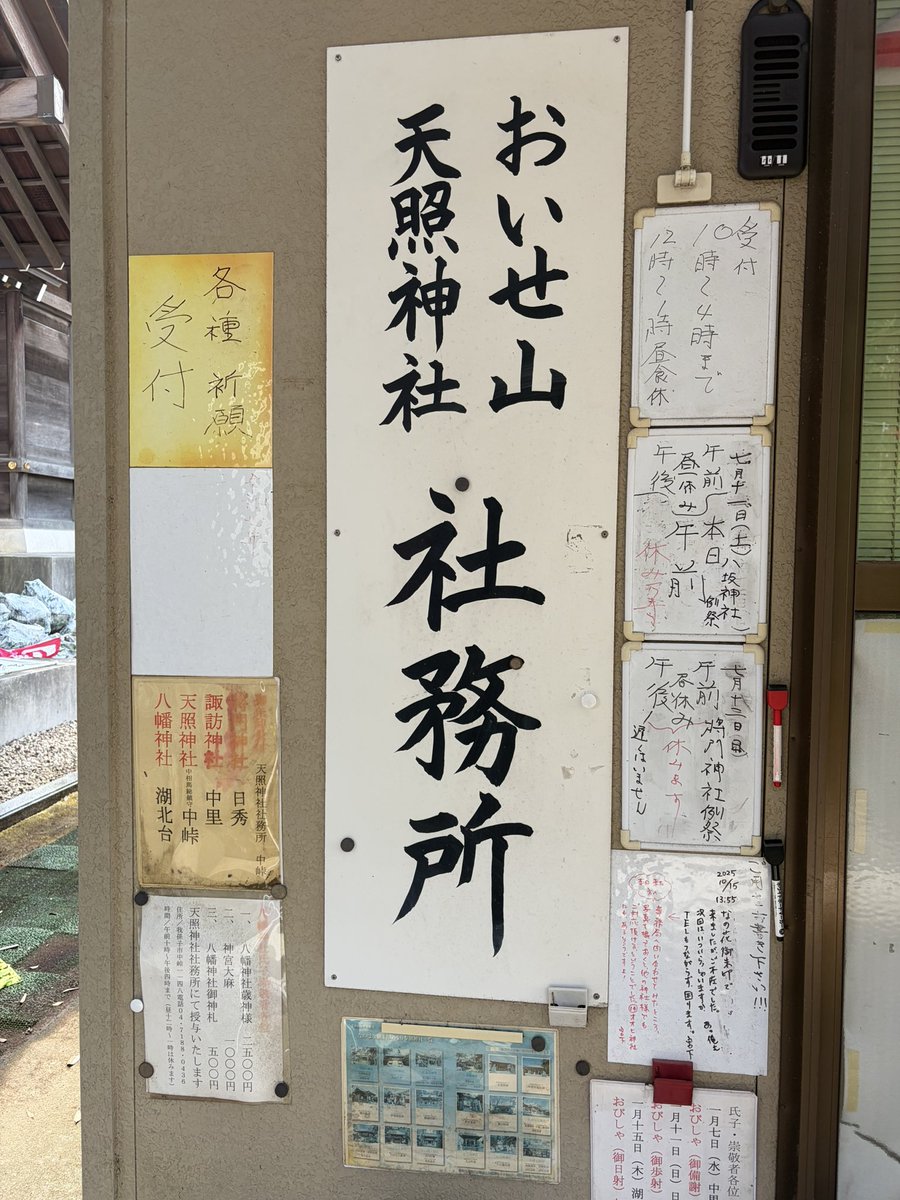 おいせ山
天照神社
社務所
各種祈願
受付
受付
10時〜4時まで
12時〜1時昼食休
七月十二日(土)八坂神社例祭
午前 本日午前
昼休み
午後 休み
七月十三日
午前 将門神社例祭
昼休み
午後 休みます
遅くはいません
天照神社社務所 中峠
日秀
諏訪神社 中里
天照神社 中峠
八幡神社 湖北台
一、八幡神社歳神様 二五〇〇円
二、神宮大麻 一〇〇〇円
三、八幡神社御神札 五〇〇円
天照神社社務所にて授与いたします
住所/我孫子市中峠一一四八電話04-7188-0436
時間/午前十時〜午後四時まで(昼十二時、一時は休みます)
2025
10/15
13:55
なの花御朱印で
来ましたがご不在でした。
次回はいついらっしゃいますか
TELもつながらず、困ります。
氏子・崇敬者各位
一月七日(水)中里
おびしゃ(御備謝)
一月十一日(日)日
おびしゃ(御歩射)
一月十五日(木)湖
おびしゃ(御日射)